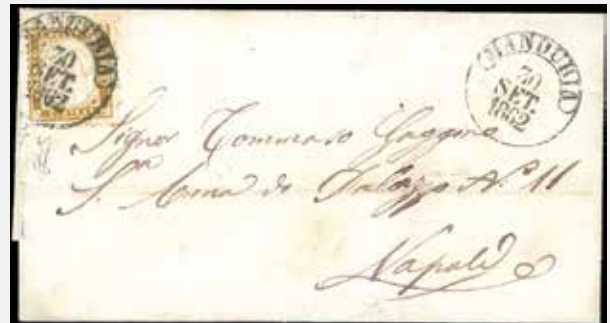 MANDURIA
30
SET.
62
MANDURIA
30
SET.
1862
Signor Tommaso Gaggino
S.ª Anna di Palazzo Nº 11
Napoli